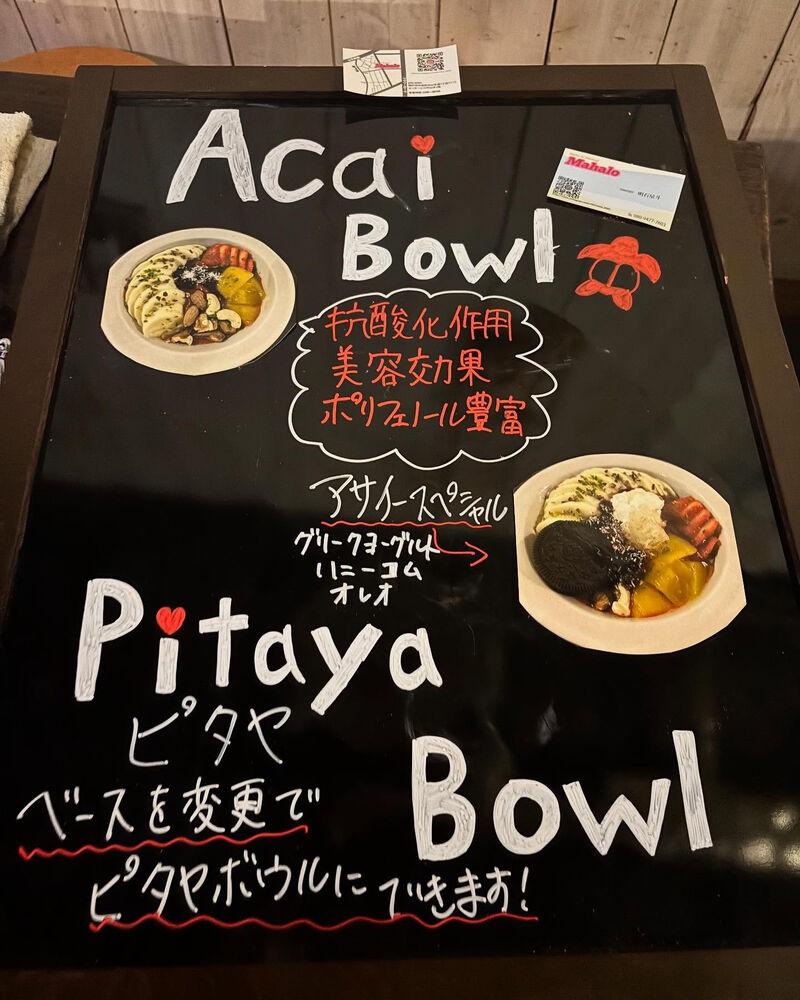 Mahalo
Acai
Bowl
Mahalo
抗酸化作用
美容効果
ポリフェノール豊富
アサイースペシャル
グリークヨーグルト
ハニーコム
オレオ
Pitaya
ピタヤ
Bowl
ベースを変更で
ピタヤボウルにできます!